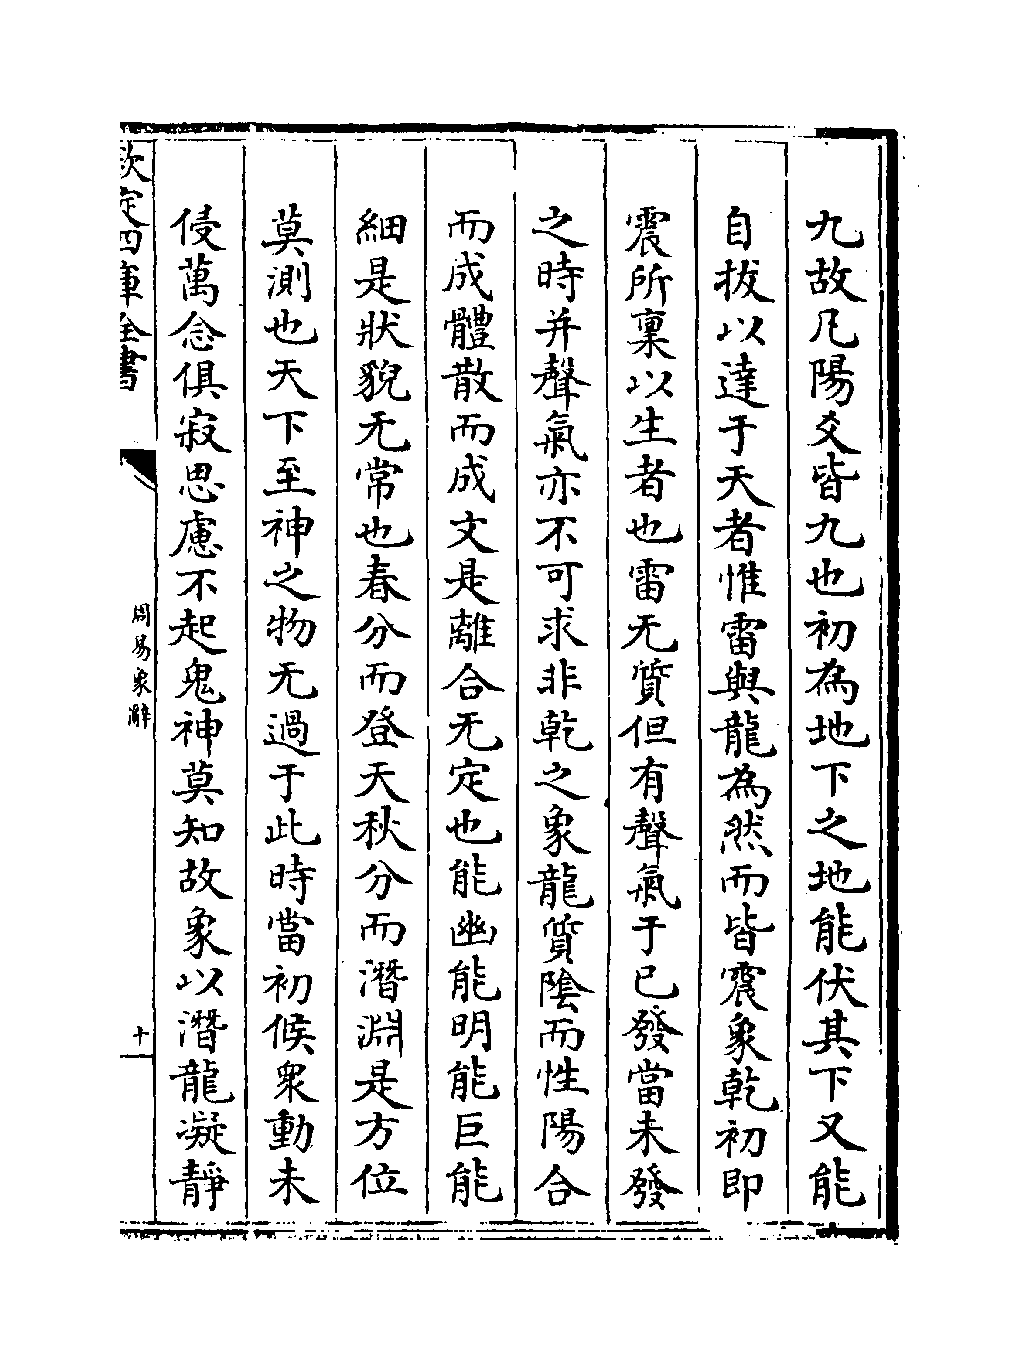 九故凡陽爻皆九也初為地下之地能伏其下又能
自拔以達于天者惟雷與龍為然而皆震象乾初即
震所稟以生者也雷无質但有聲氣于已發當未發
之時并聲氣亦不可求非乾之象龍質陰而性陽合
而成體散而成文是離合无定也能幽能明能巨能
細是狀貌无常也春分而登天秋分而潛淵是方位
莫測也天下至神之物无過于此時當初候衆動未
侵萬念俱寂思慮不起鬼神莫知故象以潛龍凝靜
欽定四庫全書
周易象辭
十